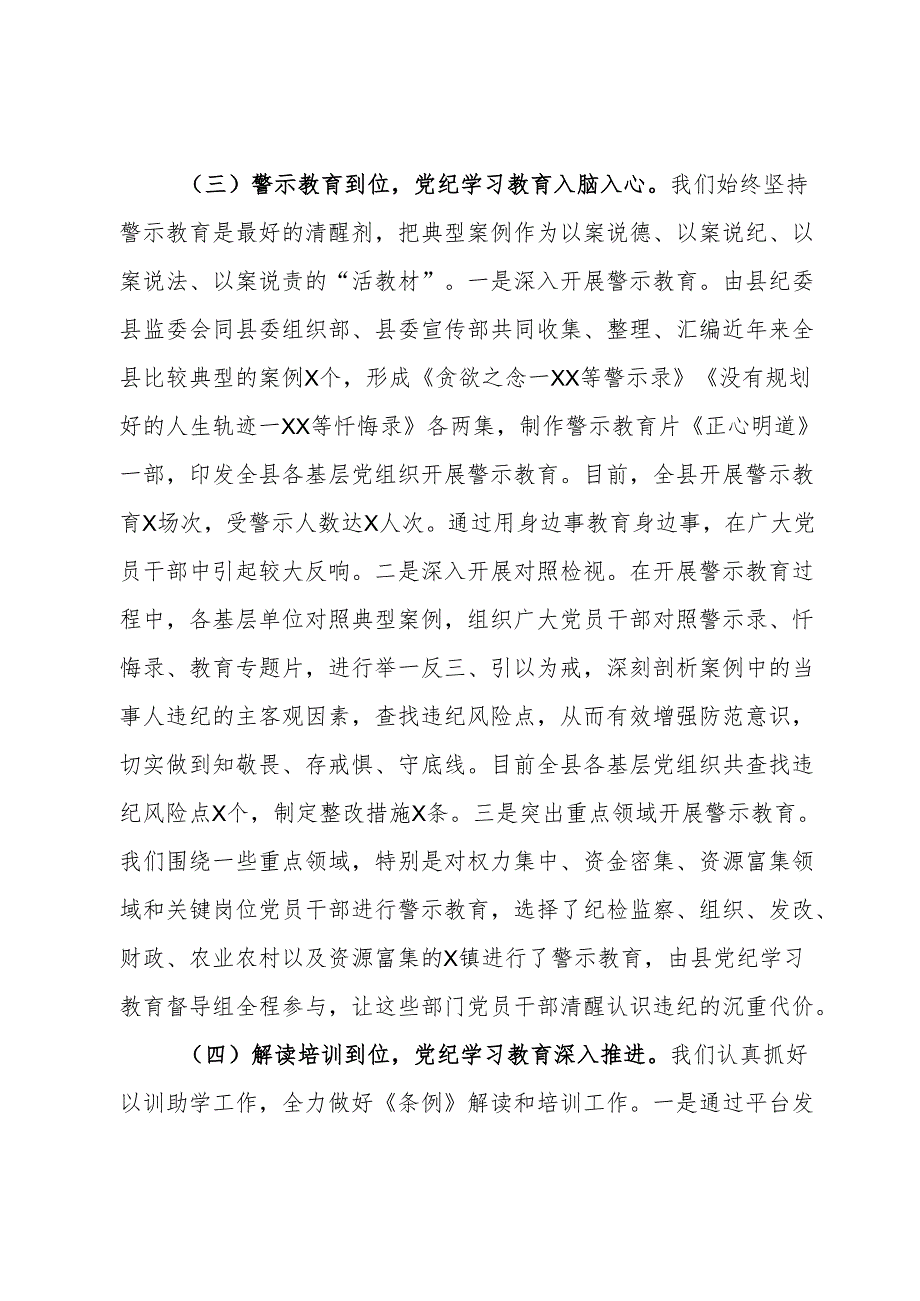 （三）警示教育到位，党纪学习教育入脑入心。我们始终坚持
警示教育是最好的清醒剂，把典型案例作为以案说德、以案说纪、以
案说法、以案说责的“活教材”。一是深入开展警示教育。由县纪委
县监委会同县委组织部、县委宣传部共同收集、整理、汇编近年来全
县比较典型的案例X个，形成《贪欲之念一XX等警示录》《没有规划
好的人生轨迹一XX等忏悔录》各两集，制作警示教育片《正心明道》
一部，印发全县各基层党组织开展警示教育。目前，全县开展警示教
育X场次，受警示人数达X人次。通过用身边事教育身边事，在广大党
员干部中引起较大反响。二是深入开展对照检视。在开展警示教育过
程中，各基层单位对照典型案例，组织广大党员干部对照警示录、忏
悔录、教育专题片，进行举一反三、引以为戒，深刻剖析案例中的当
事人违纪的主客观因素，查找违纪风险点，从而有效增强防范意识，
切实做到知敬畏、存戒惧、守底线。目前全县各基层党组织共查找违
纪风险点X个，制定整改措施X条。三是突出重点领域开展警示教育。
我们围绕一些重点领域，特别是对权力集中、资金密集、资源富集领
域和关键岗位党员干部进行警示教育，选择了纪检监察、组织、发改、
财政、农业农村以及资源富集的X镇进行了警示教育，由县党纪学习
教育督导组全程参与，让这些部门党员干部清醒认识违纪的沉重代价。
（四）解读培训到位，党纪学习教育深入推进。我们认真抓好
以训助学工作，全力做好《条例》解读和培训工作。一是通过平台发